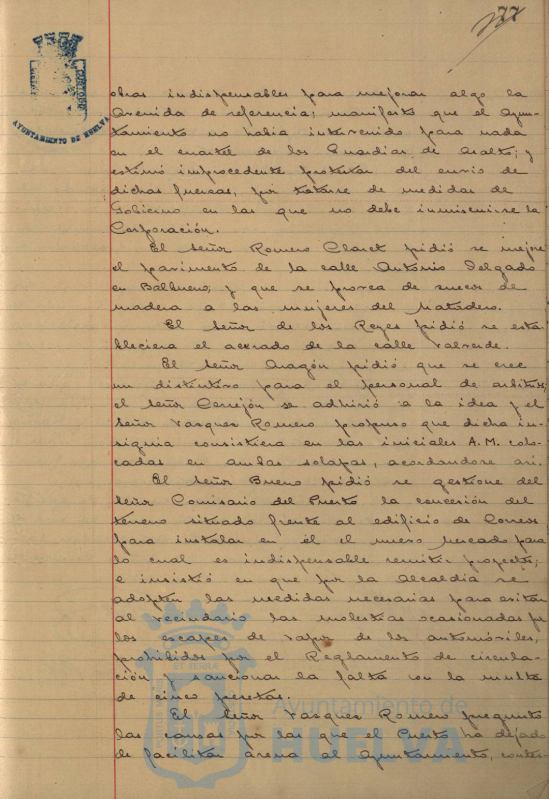 obras indispensables para mejorar algo la
Avenida de referencia; manifestó que el Ayun-
tamiento no había intervenido para nada
en el cuartel de los Guardias de Asalto; y
estimó improcedente protestar del envío de
dichas fuerzas, por tratarse de medidas de
Gobierno en las que no debe inmiscuirse la
Corporación.
El Señor Romero Claret pidió se mejore
el pavimento de la calle Antonio Delgado
en Balbueno; y que se provea de zuecos de
madera a las mujeres del Matadero.
El Señor de los Reyes pidió se esta-
bleciera el acerado de la calle Valverde.
El Señor Aragón pidió que se cree
un distintivo para el personal de arbitrios;
el Señor Cerrejón se adhirió a la idea y el
Señor Vazquez Romero propuso que dicha in-
signia consistiera en las iniciales A.M. colo-
cadas en ambas solapas, acordandose asi.
El Señor Bueno pidió se gestione del
Señor Comisario del Puerto la concesión del
terreno situado frente al edificio de Correos
para instalar en él el nuevo mercado para
lo cual es indispensable remitir proyecto;
e insistió en que por la Alcaldía se
adopten las medidas necesarias para evitar
al vecindario las molestias ocasionadas por
los escapes de vapor de los automóviles,
prohibidos por el Reglamento de circula-
ción y sancionar la falta con la multa
de cinco pesetas.
El Señor Vazquez Romero preguntó
las causas por las que el Puerto ha dejado
de facilitar arena al Ayuntamiento, contes-
AYUNTAMIENTO DE HUELVA
Ayuntamiento de
HUELVA